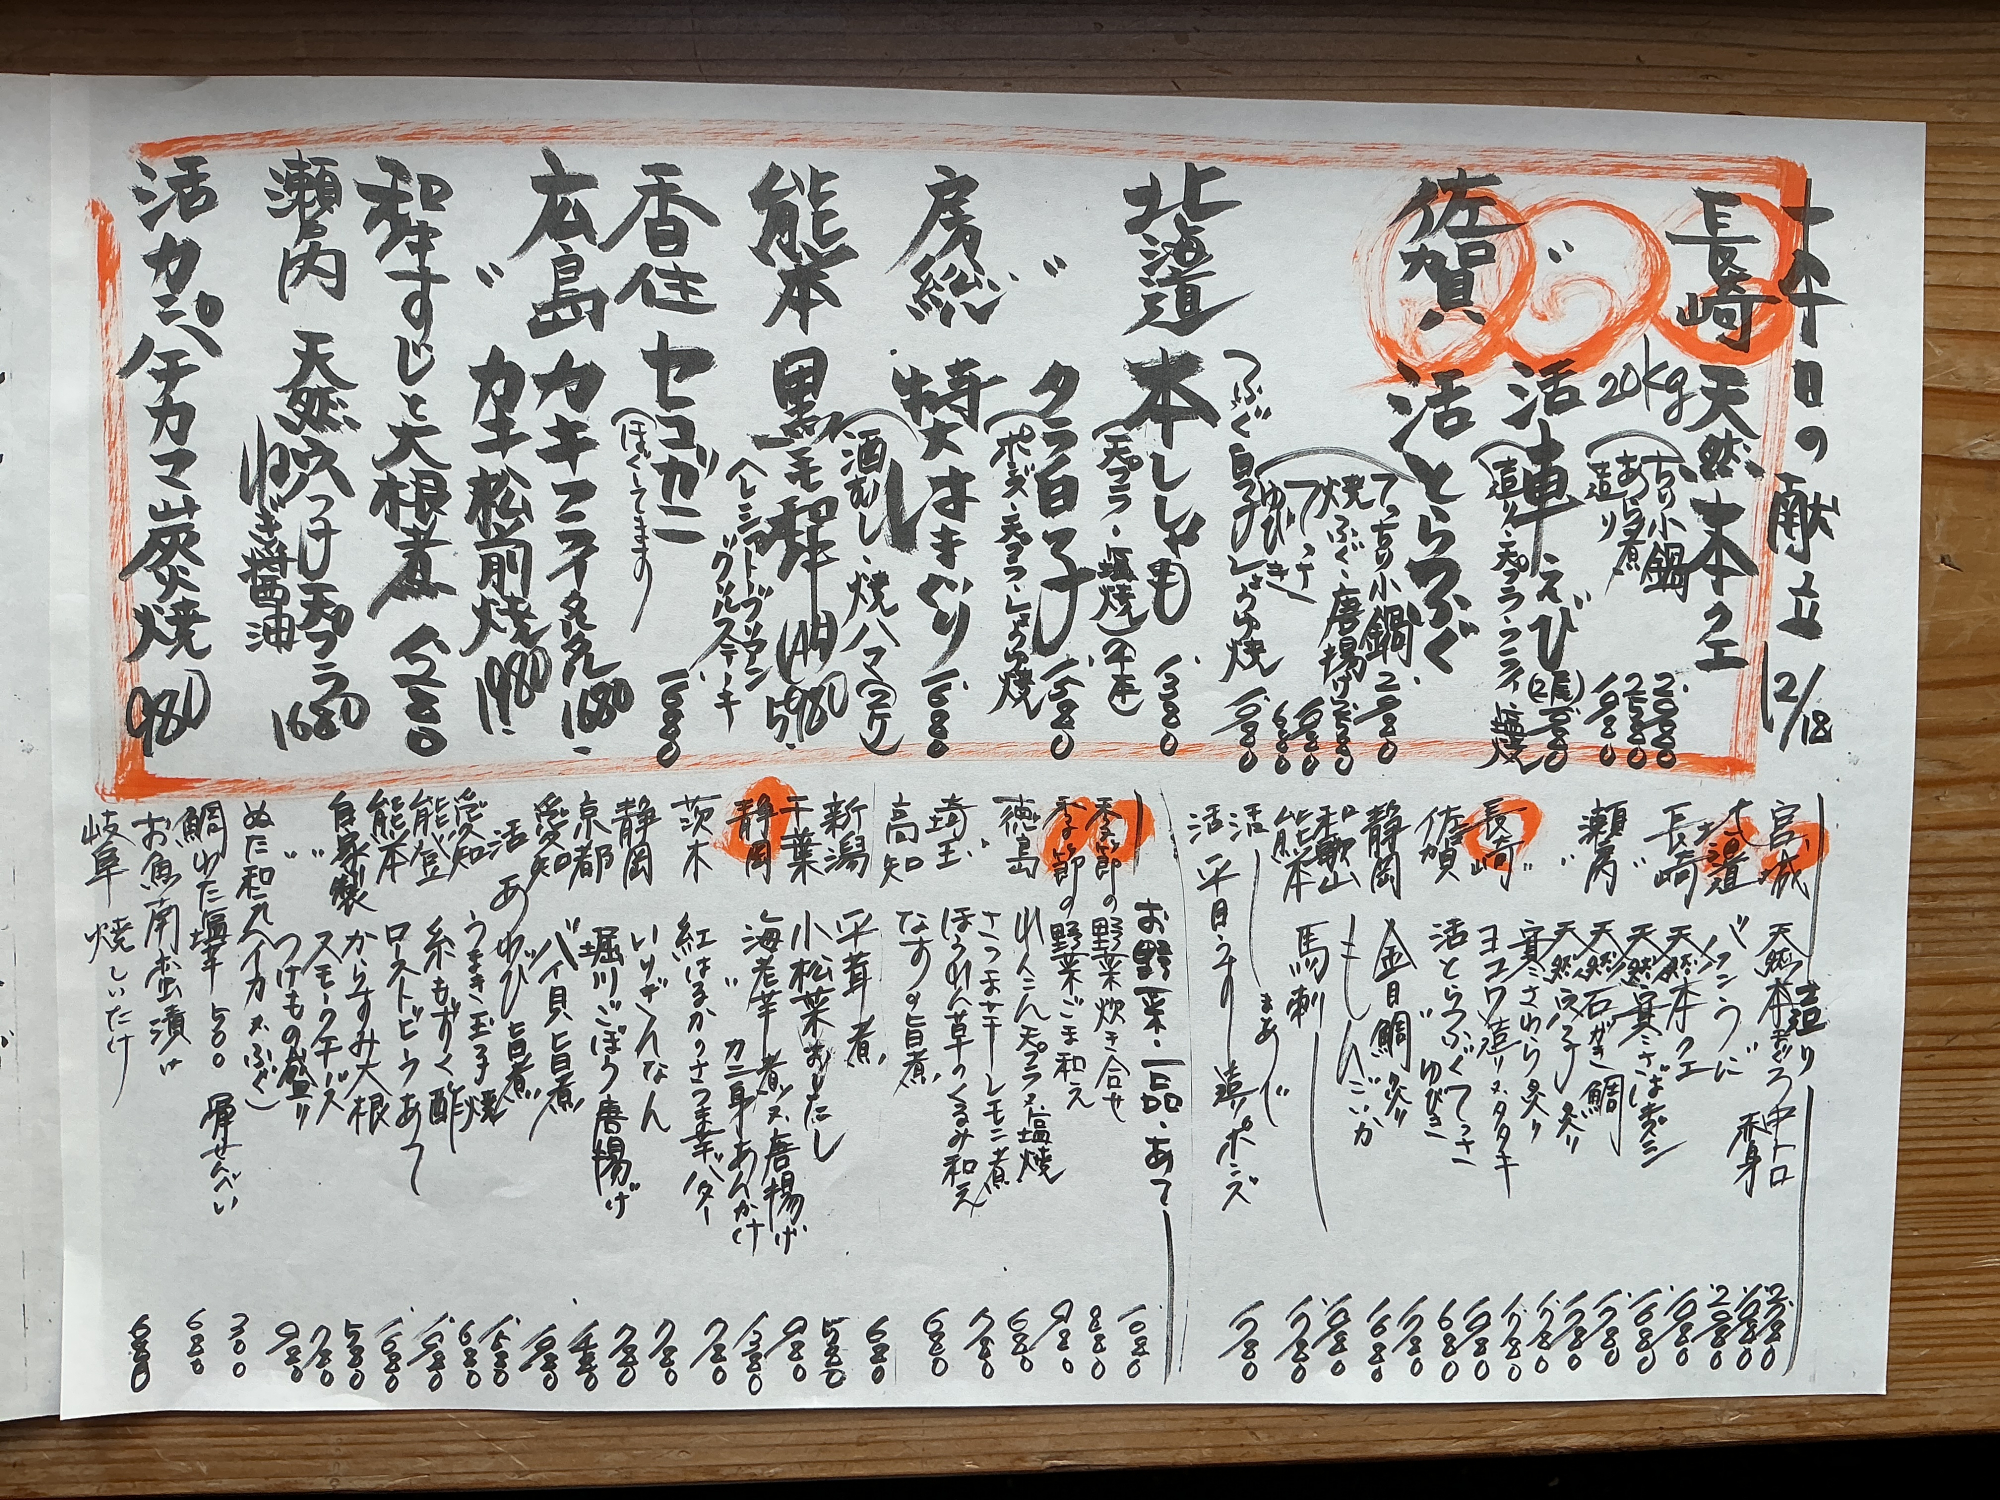 本日の献立 12/18
長崎 天然本クエ
20kg
ちり小鍋 2080
あら煮 2580
造り 1980
〃 活車えび(2尾) 1980
(造り・天プラ・フライ・塩焼
佐賀 活とらふぐ
てっちり小鍋 2080
焼ふぐ・唐揚げ 2580
てっさ 1980
ゆびき 680
つぶぐ白子しょうゆ焼 1980
北海道 本ししゃも 1380
(天プラ・塩焼)(2本)
〃 タラ白子 1580
(ポンズ・天プラ・しょうゆ焼
房総 特大はまぐり 1680
(酒むし・焼ハマ(2ケ)
熊本 黒毛和牛(A4) 5980
ヘレシャトーブリアン
ングルステーキ
香住 セコガニ 1680
(ほぐしてます)
広島 カキフライタルタル 1680
〃 カキ松前焼 1980
和牛すじと大根煮 1280
瀬戸内 天然穴子天プラ 1680
ねぎ醤油
活カンパチカマ炭焼 980
造り
宮城 天然本まぐろ 中トロ 2780
赤身 1980
北海道 バフンうに 2080
長崎 天然本クエ 1980
〃 天然寒さば きずし 1680
瀬戸内 天然石がき鯛 1780
〃 天然穴子 炙り 1780
寒さわら炙り 1780
長崎 ヨコワ造り又タタキ 1780
佐賀 活とらふぐてっさ 1980
〃 ゆびき 680
静岡 金目鯛 炙り 1780
和歌山 もんごいか 1680
熊本 馬刺 1980
活 まあじ 1780
活 平目うすー造りポンズ 1780
お野菜・一品・あて
季節の野菜炊き合せ 1080
季節の野菜ごま和え 880
徳島 れんこん天プラ又塩焼 980
〃 さつま芋レモン煮 680
埼玉 ほうれん草のくるみ和え 780
高知 なすの旨煮 680
新潟 平茸煮 680
千葉 小松菜おひたし 580
静岡 海老芋 煮又唐揚げ 980
〃 カニ身あんかけ 1380
茨木 紅はるかのさつま芋バター 780
静岡 いりぎんなん 780
京都 堀川ごぼう唐揚げ 780
愛知 バイ貝旨煮 480
活 あわび旨煮 1980
愛知 うまき玉子焼 1580
能登 糸もずく酢 680
熊本 ローストビーフあて 1980
自家製 からすみ大根 1680
〃 スモークチーズ 580
〃 つけもの盛り 780
ぬた和え(イカ又ふぐ) 980
鯛わた塩辛 500 揮せんべい 300
お魚南蛮漬け 680
岐阜 焼しいたけ 680